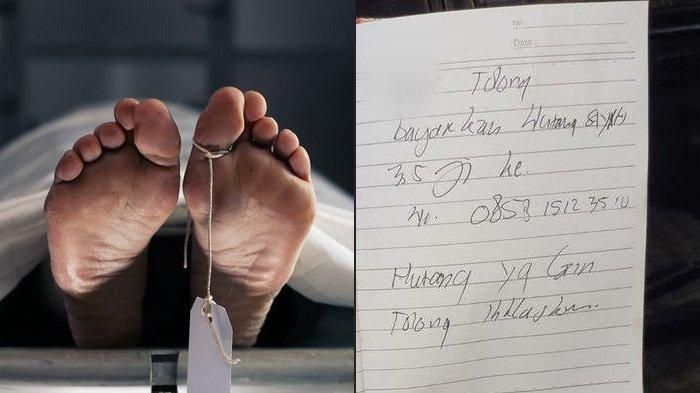 No.
Date :
Tolong
bayarkan Hutang
35 Jt ke.
0853 1512 3510
Hutang yg Lain
Tolong Ikhlaskan.